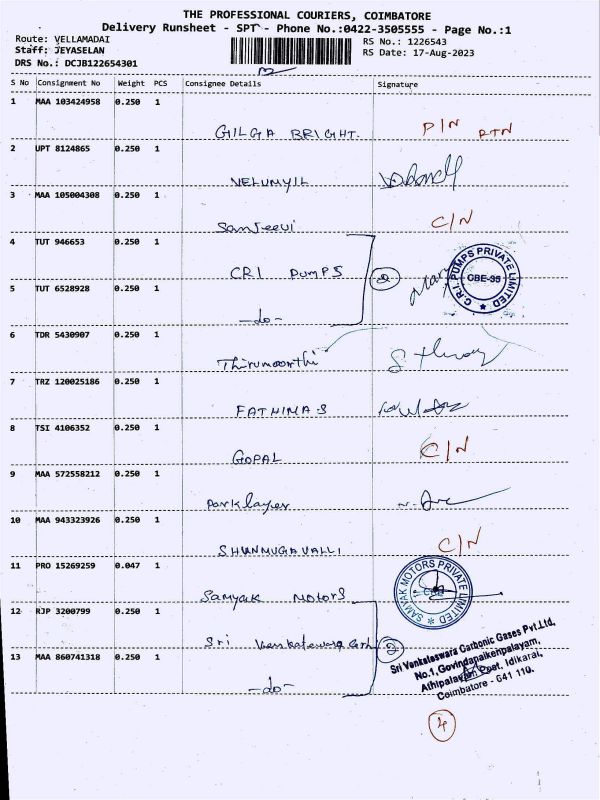 THE PROFESSIONAL COURIERS, COIMBATORE
Delivery Runsheet - SPT - Phone No.:0422-3505555 - Page No.:1
Route: VELLAMADAI
RS No.: 1226543
Staff: JEYASELAN
RS Date: 17-Aug-2023
DRS No.: DCJB122654301
S No Consignment No Weight PCS Consignee Details Signature
1 MAA 103424958 0.250 1
GILGA BRIGHT. D/N RTN
2 UPT 8124865 0.250 1
VELUMYIL
3 MAA 105004308 0.250 1
Sanjeevi C/N
4 TUT 946653 0.250 1
CRI PUMPS 2
C.R.I. PUMPS PRIVATE LIMITED
CBE-35
5 TUT 6528928 0.250 1
-do-
6 TDR 5430907 0.250 1
Thirumoorthi
7 TRZ 120025186 0.250 1
FATHIMA S
8 TSI 4106352 0.250 1
GOPAL C/N
9 MAA 572558212 0.250 1
Parklayer
10 MAA 943323926 0.250 1
SHUNMUGAVALLI C/N
11 PRO 15269259 0.047 1
SAMYAK MOTORS PRIVATE LIMITED
CBE
Samyak Motors
12 RJP 3200799 0.250 1
Sri Venkateswara 2
Sri Venkateswara Carbonic Gases Pvt.Ltd,
No.1,Govindanaikenpalayam,
Athipalayam Post, Idikarai,
Coimbatore - 641 110.
13 MAA 860741318 0.250 1
-do-
4